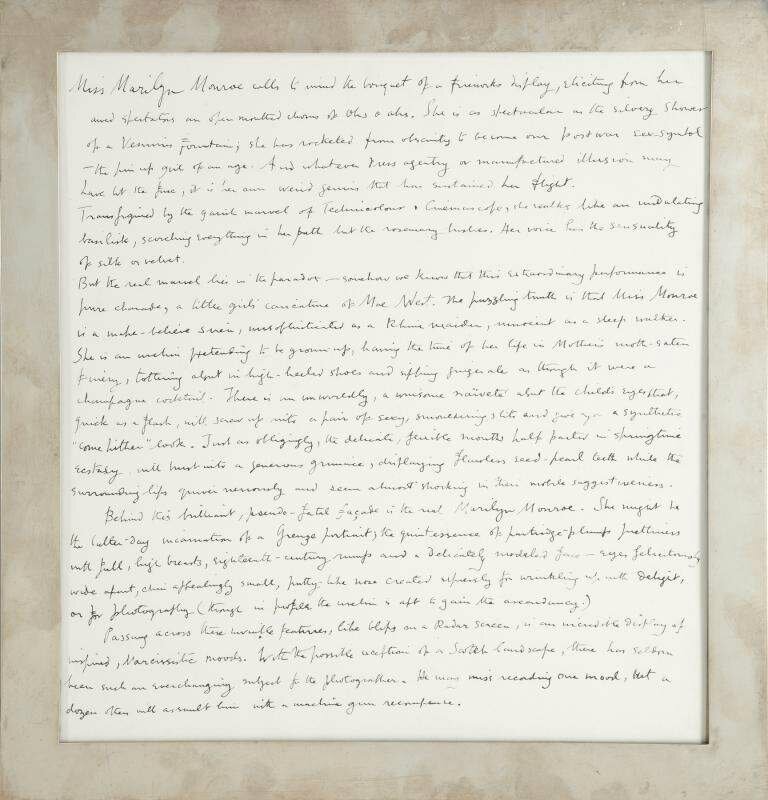 Miss Marilyn Monroe calls to mind the bouquet of a fireworks display, eliciting from her
awed spectators an open mouthed chorus of Ohs & ahs. She is as spectacular as the silvery shower
of a Vesuvius Fountain; she has rocketed from obscurity to become our post war sex-symbol
— the pin up girl of an age. And whatever press agentry or manufactured illusion may
have lit the fuse, it is her own weird genius that has sustained her flight.
Transfigured by the garish marvel of Technicolour & Cinemascope, she walks like an undulating
basilisk, scorching everything in her path but the rosemary bushes. Her voice has the sensuality
of silk or velvet.
But the real marvel lies in the paradox — somehow we know that this extraordinary performance is
pure charade, a little girls caricature of Mae West. The puzzling truth is that Miss Monroe
is a make-believe siren, unsophisticated as a Rhine maiden, innocent as a sleep walker.
She is an urchin pretending to be grown-up, having the time of her life in Mother's moth-eaten
finery, tottering about in high-heeled shoes and sipping gingerale as though it were a
champagne cocktail. There is an unworldly, a winsome naiveté about the child's eyes that,
quick as a flash, will screw up into a pair of sexy, smouldering slits and give you a synthetic
"come hither" look. Just as obligingly, the delicate, flexible mouth half parted in springtime
ecstasy, will burst into a generous grimace, displaying flawless seed-pearl teeth while the
surrounding lips quiver nervously and seem almost shocking in their mobile suggestiveness.
Behind this brilliant, pseudo-fatal façade is the real Marilyn Monroe. She might be
the latter-day incarnation of a Greuze portrait; the quintessence of partridge-plump prettiness
with full, high breasts, eighteenth-century rump and a delicately modeled face — eyes felicitously
wide apart, chin appealingly small, putty-like nose created expressly for wrinkling up with delight,
or for photography (though in profile the urchin is apt to gain the ascendancy.)
Passing across these invisible features, like blips on a Radar screen, is an incredible display of
inspired, Narcissistic moods. With the possible exception of a Scotch landscape, there has seldom
been such an everchanging subject for the photographer. He may miss recording one mood, but a
dozen others will assault him with a machine gun recompense.